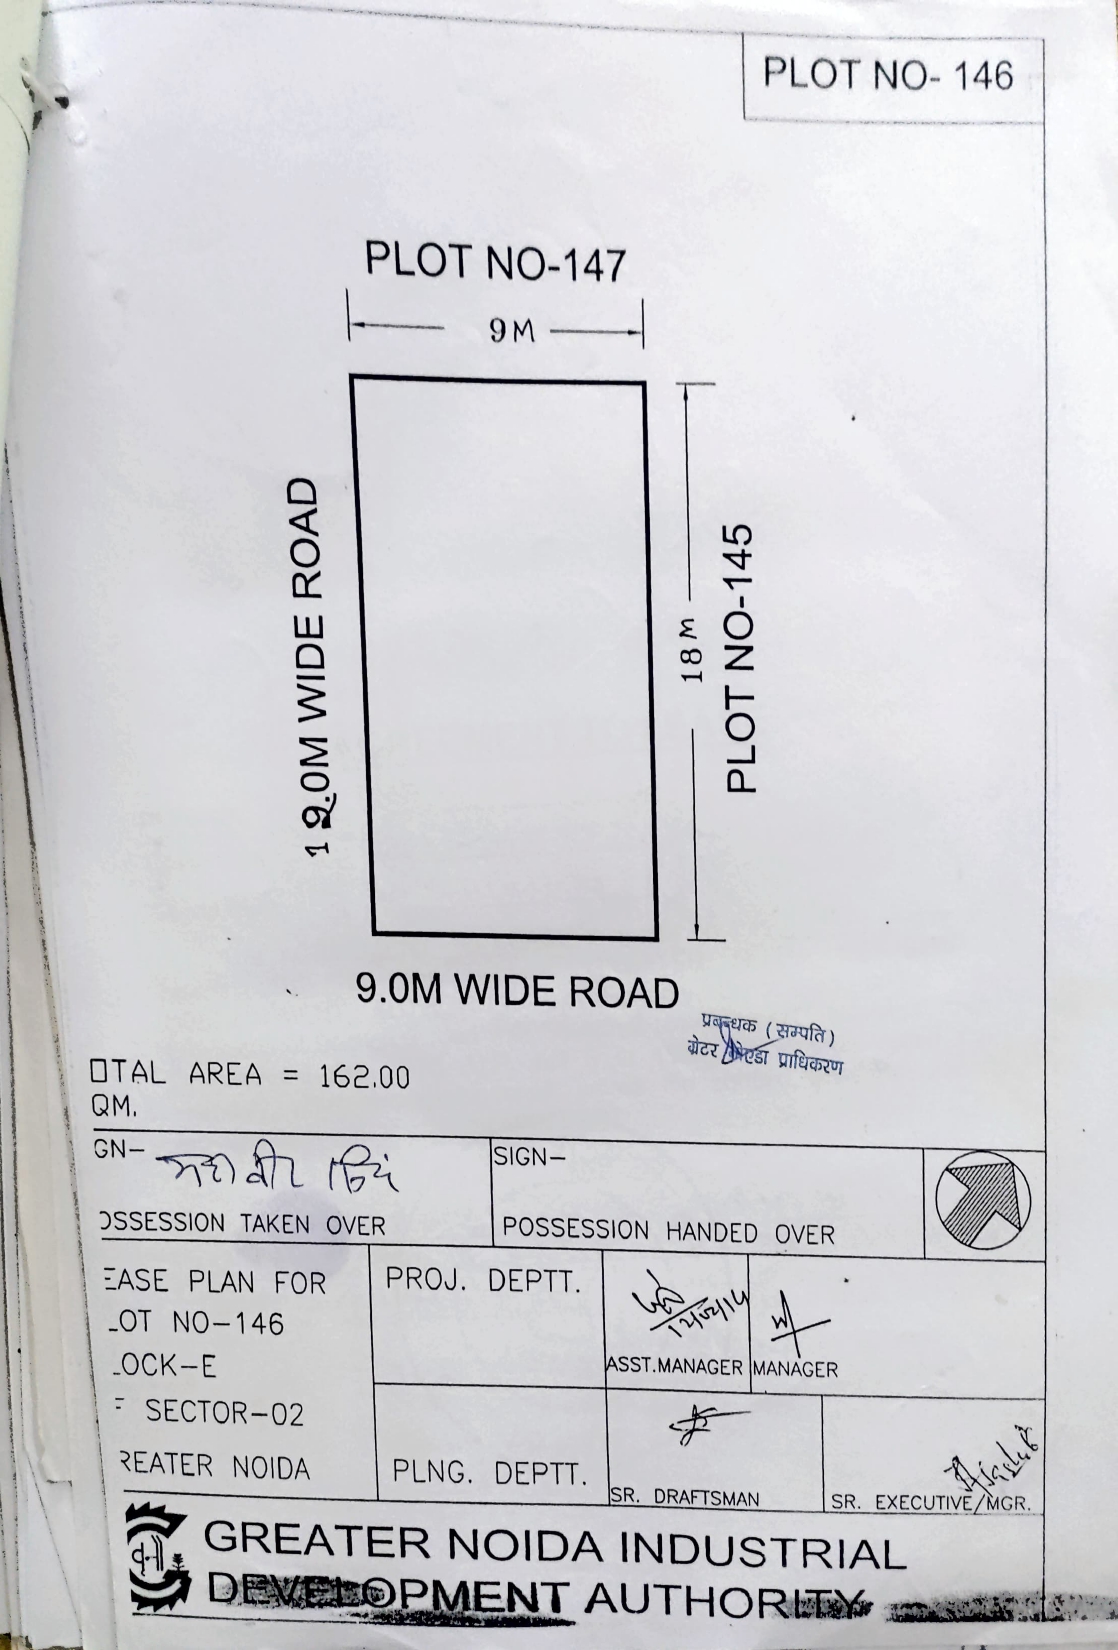 PLOT NO- 146
PLOT NO-147
9M
12.0M WIDE ROAD
18M
PLOT NO-145
9.0M WIDE ROAD
प्रबन्धक (सम्पति)
ग्रेटर नोएडा प्राधिकरण
OTAL AREA = 162.00
QM.
GN-
महावीर सिंह
OSSESSION TAKEN OVER
SIGN-
POSSESSION HANDED OVER
EASE PLAN FOR
LOT NO-146
LOCK-E
SECTOR-02
REATER NOIDA
PROJ. DEPTT.
12/02/14
ASST.MANAGER
MANAGER
PLNG. DEPTT.
SR. DRAFTSMAN
SR. EXECUTIVE/MGR.
GREATER NOIDA INDUSTRIAL
DEVELOPMENT AUTHORITY